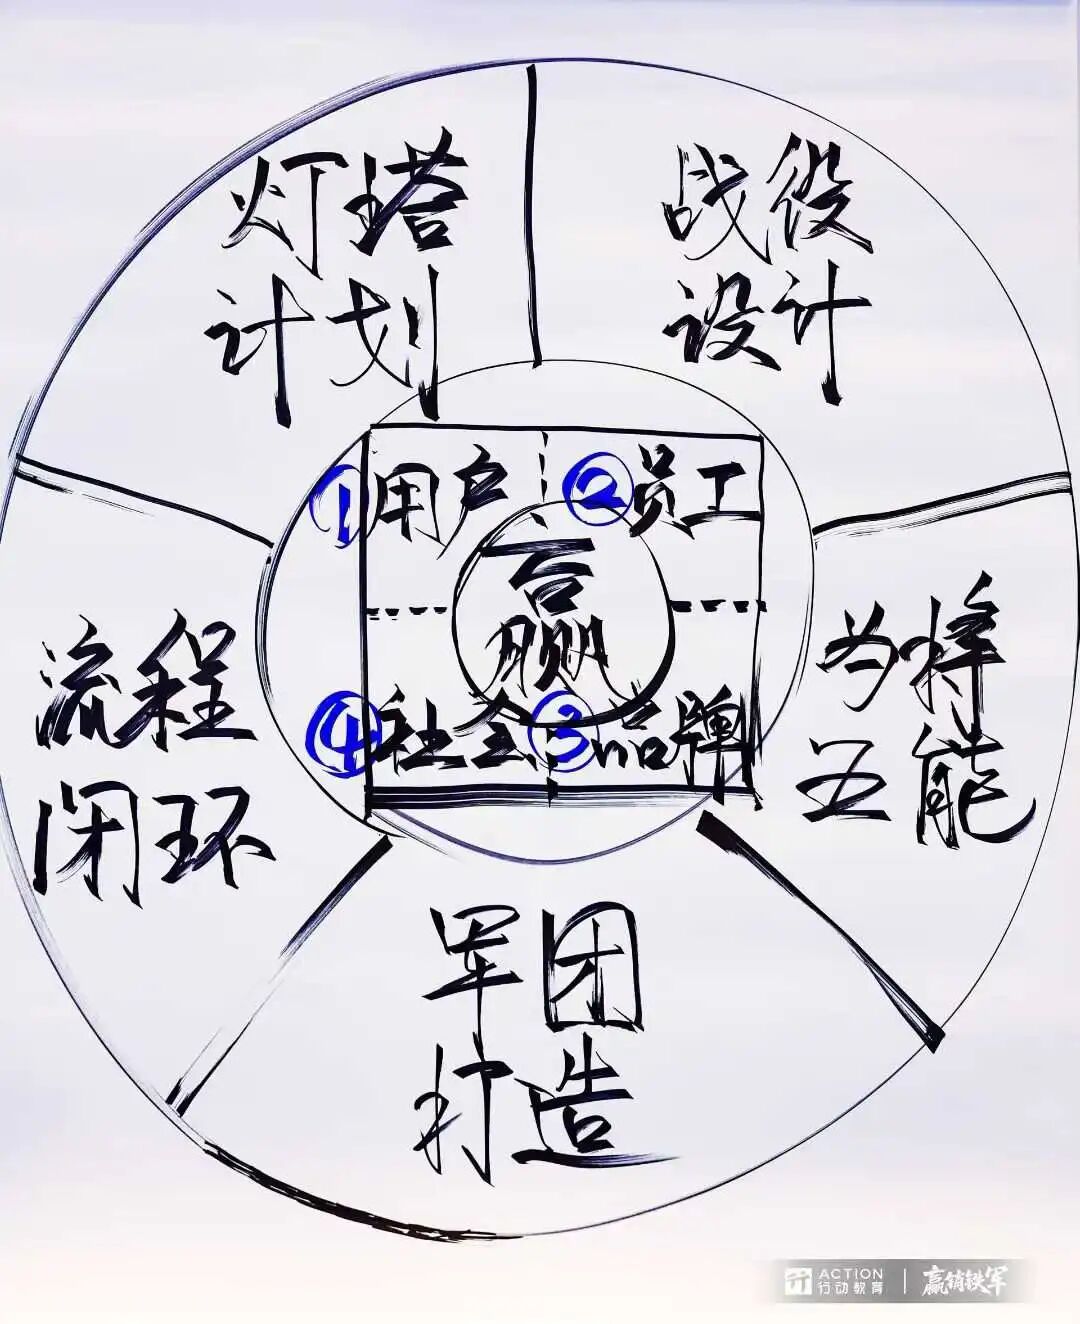 灯塔
计划
战役
设计
①用户
②员工
赢
④社会
③品牌
流程
闭环
为将
五能
军团
打造
ACTION
行动教育
赢销铁军